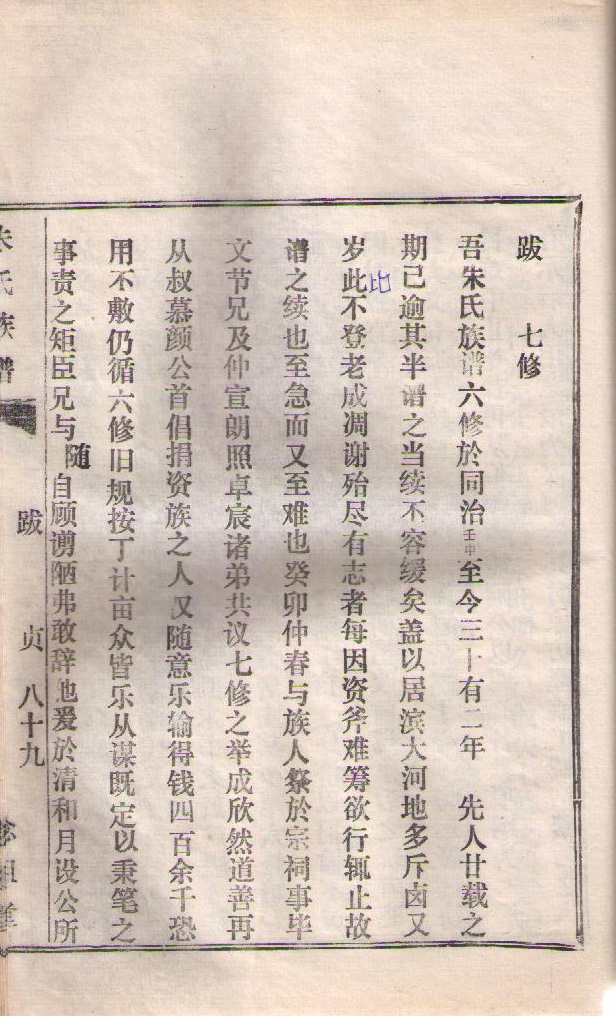 跋 七修
吾朱氏族谱六修於同治壬申至今三十有二年 先人廿载之
期已逾其半谱之当续不容缓矣盖以居滨大河地多斥卤又
岁此不登老成凋谢殆尽有志者每因资斧难筹欲行辄止故
比
谱之续也至急而又至难也癸卯仲春与族人祭於宗祠事毕
文节兄及仲宣朗照卓宸诸弟共议七修之举成欣然道善再
从叔慕颜公首倡捐资族之人又随意乐输得钱四百余千恐
用不敷仍循六修旧规按丁计亩众皆乐从谋既定以秉笔之
事责之矩臣兄与随自顾谫陋弗敢辞也爰於清和月设公所
朱氏族谱 跋 贞 八十九